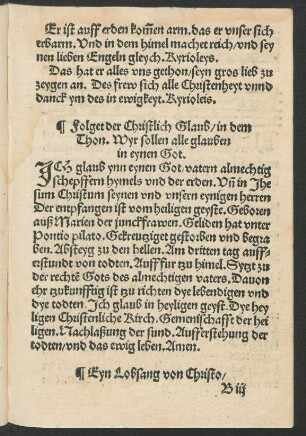 Er ist auff erden kom̃en arm. das er vnser sich
erbarm. Vnd in dem himel machet reich/ vnd sey
nen lieben Engeln gleych. Kyrioleys.
Das hat er alles vns gethon/ seyn gros lieb zu
zeygen an. Des frew sich alle Christenheyt vnnd
danck ym des in ewigkeyt. Kyrioleis.
¶ Folget der Christlich Glaub/ in dem
Thon. Wyr sollen alle glauben
in eynen Got.
ICh glaub ynn eynen Got/ vatern almechtig
schepffern hymels vnd der erden. Vñ in Jhe
sum Christum seynen vnd vnsern eynigen herren
Der entpfangen ist vom heiligen geyste. Geboren
auß Marien der junckfrawen. Geliden hat vnter
Pontio pilato. Gekreutziget gestorben vnd begra
ben. Absteyg zu den hellen. Am dritten tag auff-
erstundt von todten. Auff fur tzu himel. Sytzt zu
der rechtẽ Gots des almechtigen vaters. Dauon
ehr tzukunfftig ist tzu richten dye lebendigen vnd
dye todten. Ich glaub in heyligen geyst. Dye hey
ligen Christenliche Kirch. Gemeinschafft der hei
ligen. Nachlaßung der sund. Aufferstehung der
todten/ vnd das ewig leben. Amen.
¶ Eyn Lobsang von Christo/
B iij